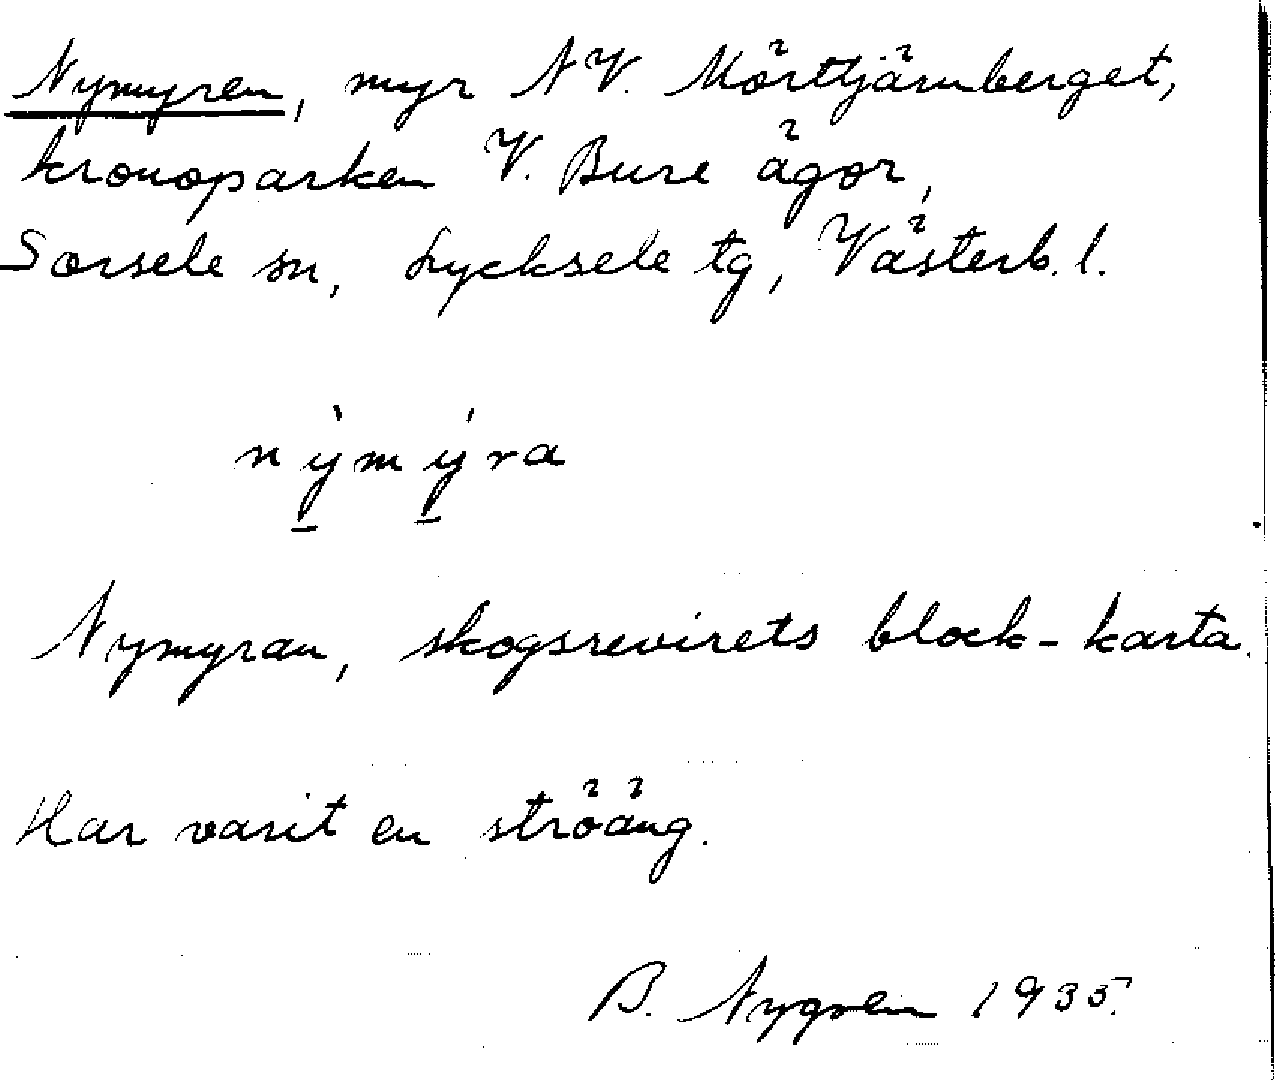 Nymyren, myr NV. Mörttjärnberget,
kronoparken V. Bure ägor,
Sorsele sn, Lycksele tg, Västerb. l.
nỳmýra
Nymyran, skogsrevirets block-karta.
Har varit en ströäng.
B. Nygren 1935.